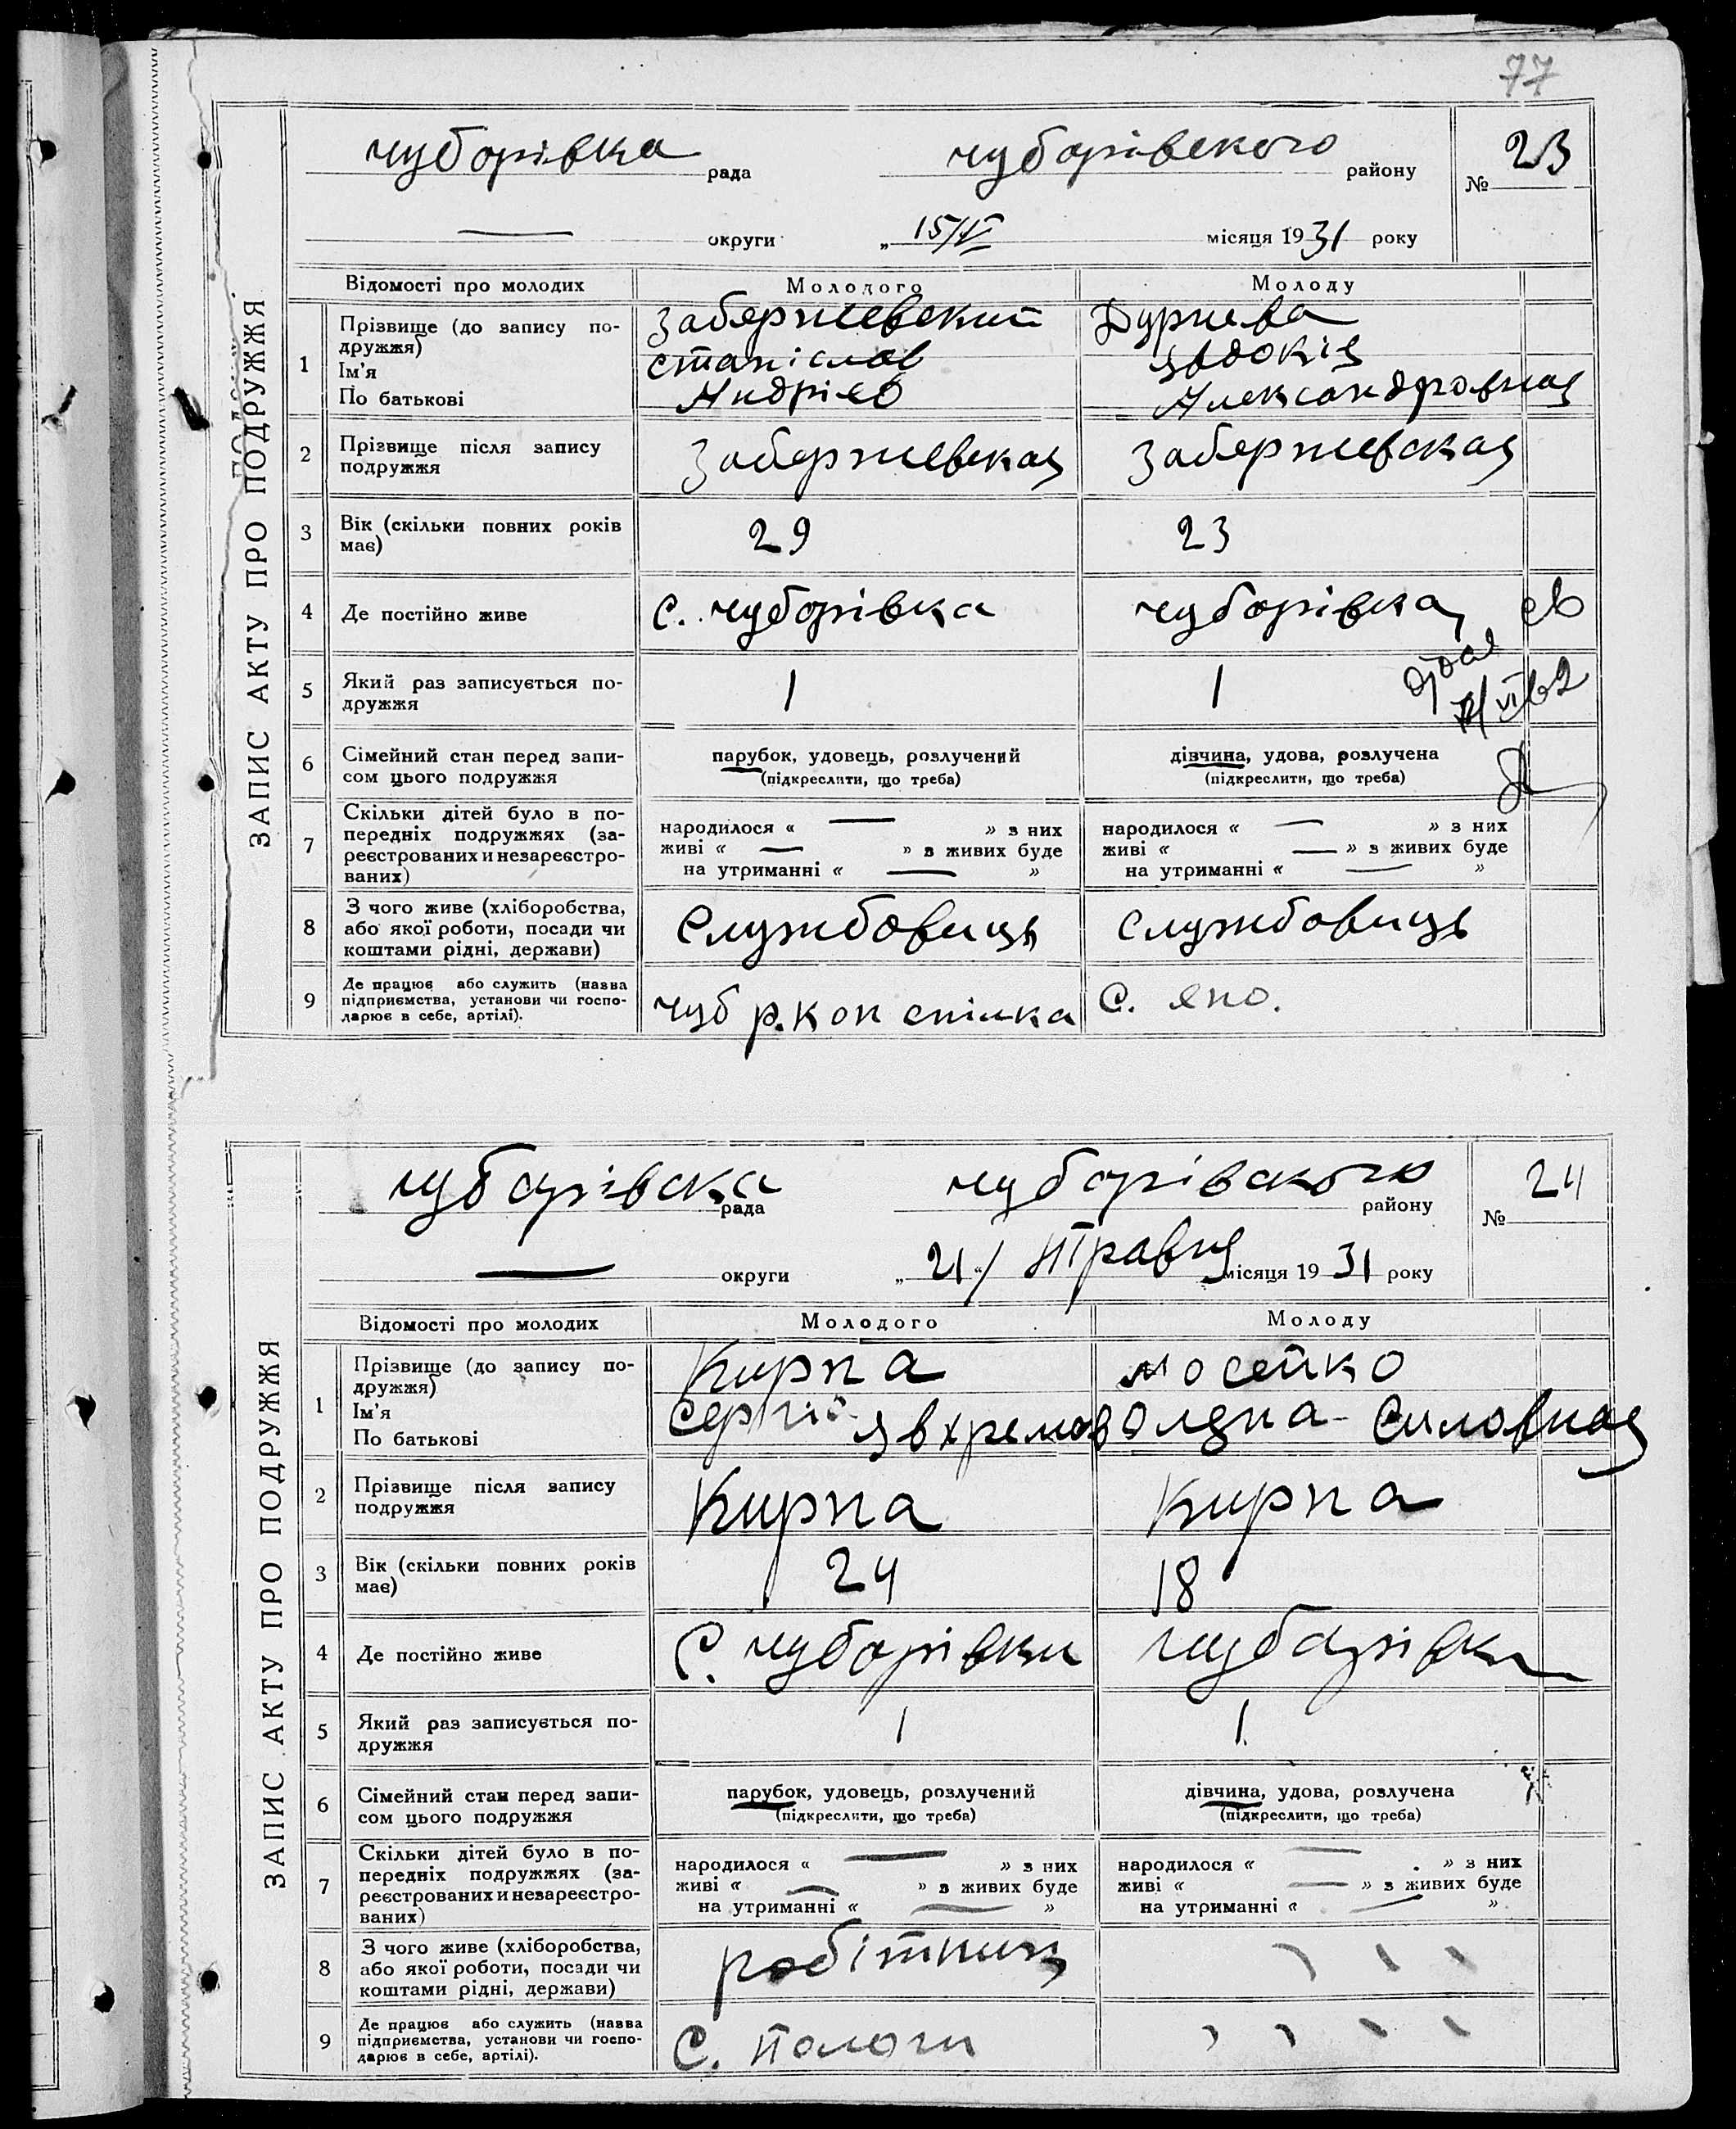 77
чуборівка рада чуборівского району № 23
— округи „ 15/VI місяця 1931 року
ЗАПИС АКТУ ПРО ПОДРУЖЖЯ
Відомості про молодих Молодого Молоду
1 Прізвище (до запису по-
дружжя)
Ім'я
По батькові
Забяржевский
станіслав
Андрієв
Дурнева
Явдокія
Александровная
2 Прізвище після запису
подружжя
Забяржевская Забяржевская
3 Вік (скільки повних років
має)
29 23
4 Де постійно живе с. чуборівка чуборівка
5 Який раз записується по-
дружжя
1 1
6 Сімейний стан перед запи-
сом цього подружжя
парубок, удовець, розлучений
(підкреслити, що треба)
дівчина, удова, розлучена
(підкреслити, що треба)
7 Скільки дітей було в по-
передніх подружжях (за-
реєстрованих и незареєстро-
ваних)
народилося « — » з них
живі « — » з живих буде
на утриманні « — »
народилося « — » з них
живі « — » з живих буде
на утриманні « — »
8 З чого живе (хліборобства,
або якої роботи, посади чи
коштами рідні, держави)
Службовиць службовиць
9 Де працює або служить (назва
підприємства, установи чи госпо-
дарює в себе, артілі).
чуб р.коп спілка С. япо.
чубарівска рада чуборівского району № 24
— округи „ 21 “/ травня місяця 1931 року
ЗАПИС АКТУ ПРО ПОДРУЖЖЯ
Відомості про молодих Молодого Молоду
1 Прізвище (до запису по-
дружжя)
Ім'я
По батькові
Кирпа
Сергій Явхремов
Мосейко
Оляна Силовная
2 Прізвище після запису
подружжя
Кирпа Кирпа
3 Вік (скільки повних років
має)
24 18
4 Де постійно живе С. чуборівки чубарівки
5 Який раз записується по-
дружжя
1 1
6 Сімейний стан перед запи-
сом цього подружжя
парубок, удовець, розлучений
(підкреслити, що треба)
дівчина, удова, розлучена
(підкреслити, що треба)
7 Скільки дітей було в по-
передніх подружжях (за-
реєстрованих и незареєстро-
ваних)
народилося « — » з них
живі « — » з живих буде
на утриманні « — »
народилося « — » з них
живі « — » з живих буде
на утриманні « — »
8 З чого живе (хліборобства,
або якої роботи, посади чи
коштами рідні, держави)
робітниц
9 Де працює або служить (назва
підприємства, установи чи госпо-
дарює в себе, артілі).
С. Пологи